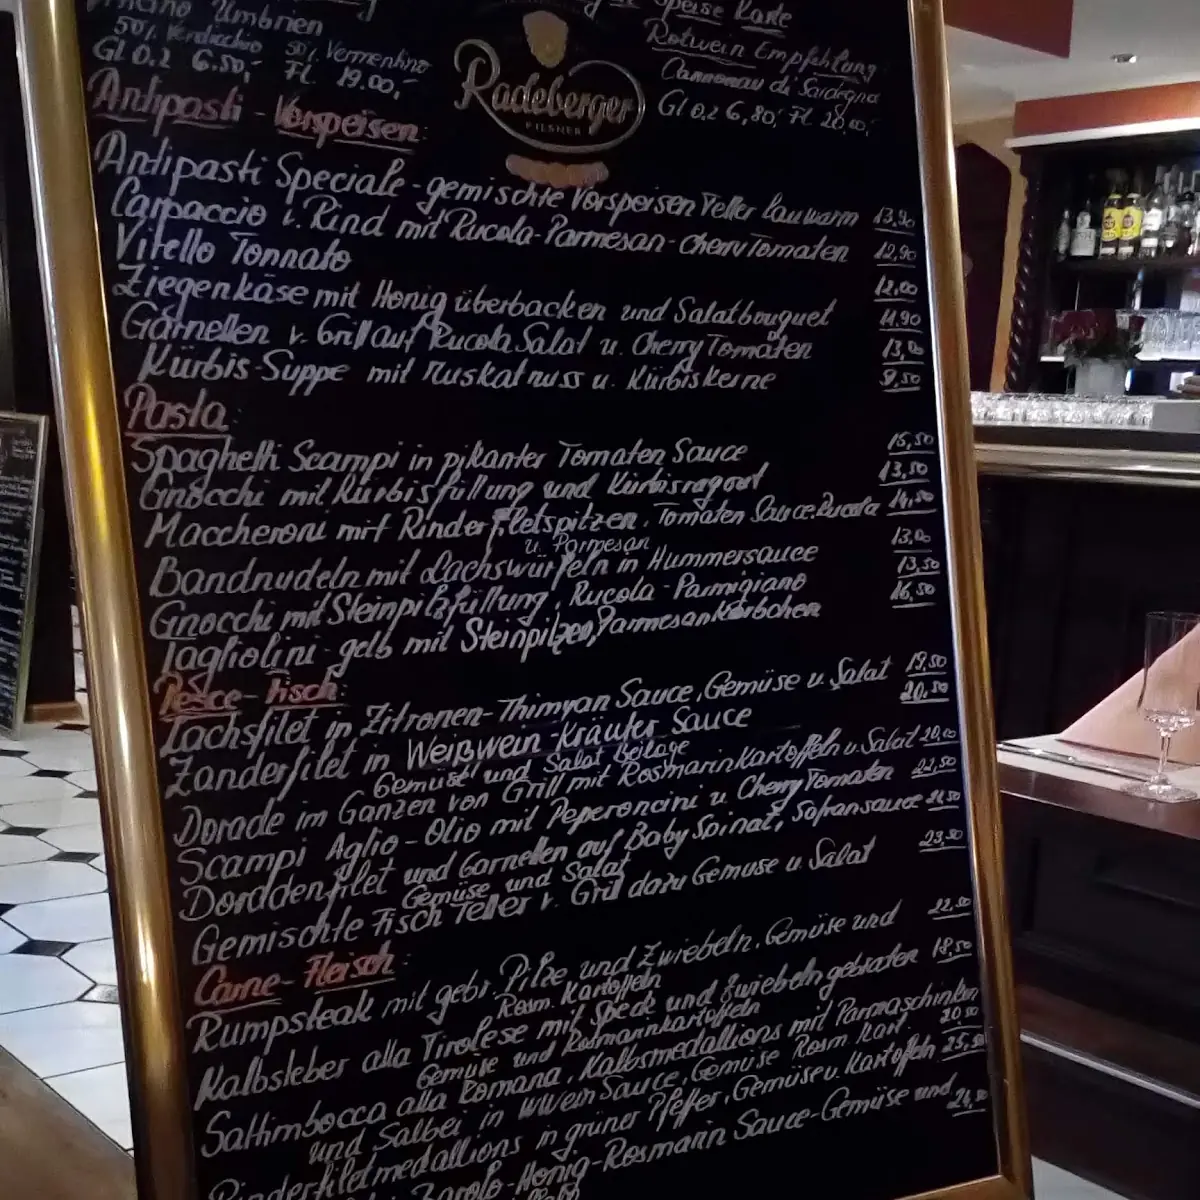 Umbrien
50% Verdicchio 50% Vermentino
Gl 0.2 6.50,- Fl. 19.00,-
Radeberger
PILSNER
Speise Karte
Rotwein Empfehlung:
Cannonau di Sardegna
Gl 0,2 6,80,- Fl 20,00,-
Antipasti - Vorspeisen:
Antipasti Speciale - gemischte Vorspeisen Teller lauwarm 13,90
Carpaccio v. Rind mit Rucola-Parmesan-Cherry Tomaten 12,90
Vitello Tonnato 12,00
Ziegenkäse mit Honig überbacken und Salatbouquet 11,90
Garnellen v. Grill auf Rucola Salat u. Cherry Tomaten 13,00
Kürbis-Suppe mit Muskatnuss u. Kürbiskerne 9,50
Pasta:
Spaghetti Scampi in pikanter Tomaten Sauce 15,50
Gnocchi mit Kürbisfüllung und Kürbisragout 13,50
Maccheroni mit Rinderfiletspitzen, Tomaten Sauce, Rucola 14,50
u. Parmesan
Bandnudeln mit Lachswürfeln in Hummersauce 13,00
Gnocchi mit Steinpilzfüllung, Rucola-Parmigiano 13,50
Tagliolini gelb mit Steinpilzen, Parmesankörbchen 16,50
Pesce - Fisch:
Lachsfilet in Zitronen-Thimyan Sauce, Gemüse u. Salat 19,50
Zanderfilet in Weißwein-Kräuter Sauce 20,50
Gemüse und Salat Beilage
Dorade im Ganzen von Grill mit Rosmarinkartoffeln u. Salat 20,00
Scampi Aglio-Olio mit Peperoncini u. Cherry Tomaten 22,50
Doraddenfilet und Garnellen auf Baby Spinat, Safransauce 21,50
Gemüse und Salat
Gemischte Fisch Teller v. Grill dazu Gemüse u. Salat 23,50
Carne - Fleisch:
Rumpsteak mit gebr. Pilze und Zwiebeln, Gemüse und 22,50
Rosm. Kartoffeln
Kalbsleber alla Tirolese mit Speck und Zwiebeln gebraten 18,50
Gemüse und Rosmarinkartoffeln
Saltimbocca alla Romana, Kalbsmedallions mit Parmaschinken
und Salbei in Wwein Sauce, Gemüse Rosm. Kart. 20,50
Rinderfiletmedallions in grüner Pfeffer, Gemüse u. Kartoffeln 25,50
Barolo-Honig-Rosmarin Sauce-Gemüse und 24,50